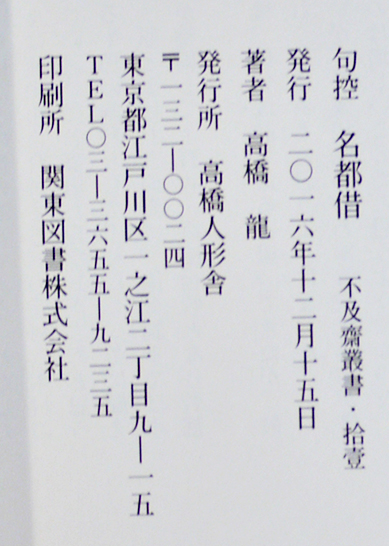 句控　名都借　不及齋叢書・拾壹
発行　二〇一六年十二月十五日
著者　高橋　龍
発行所　高橋人形舎
〒一三二―〇〇二四
東京都江戸川区一之江二丁目九―一五
ＴＥＬ〇三―三六五五―九二三五
印刷所　関東図書株式会社